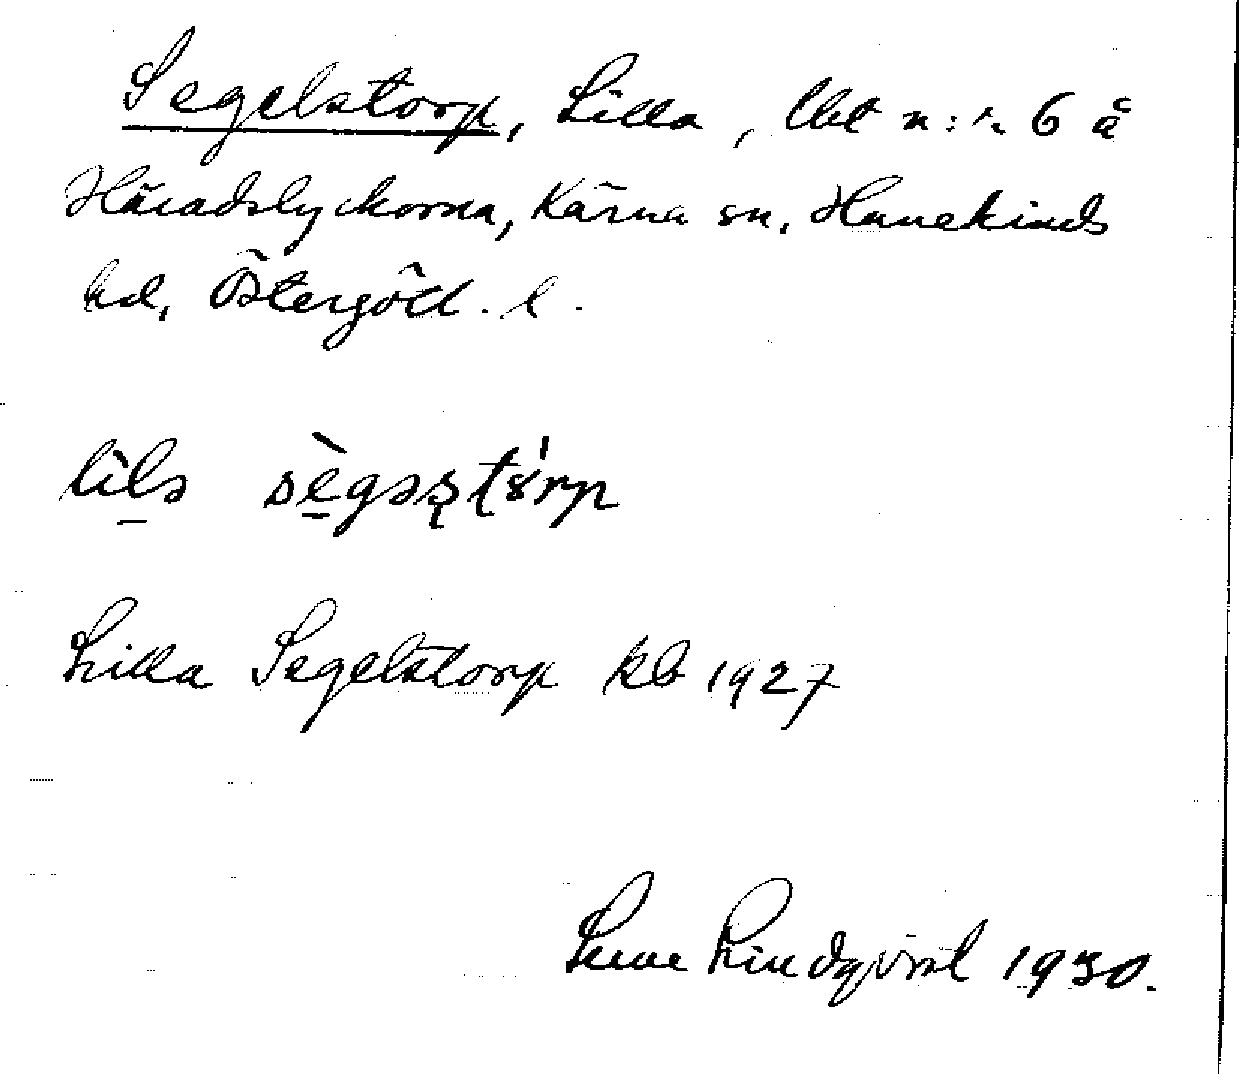 Segelstorp, Lilla, lht n:r 6 å
Häradslyckorna, Kärna sn, Hanekinds
hd, Östergötl. l.
lìlə sègəʂʈórp
Lilla Segelstorp kb 1927
Sune Lindqvist 1930.